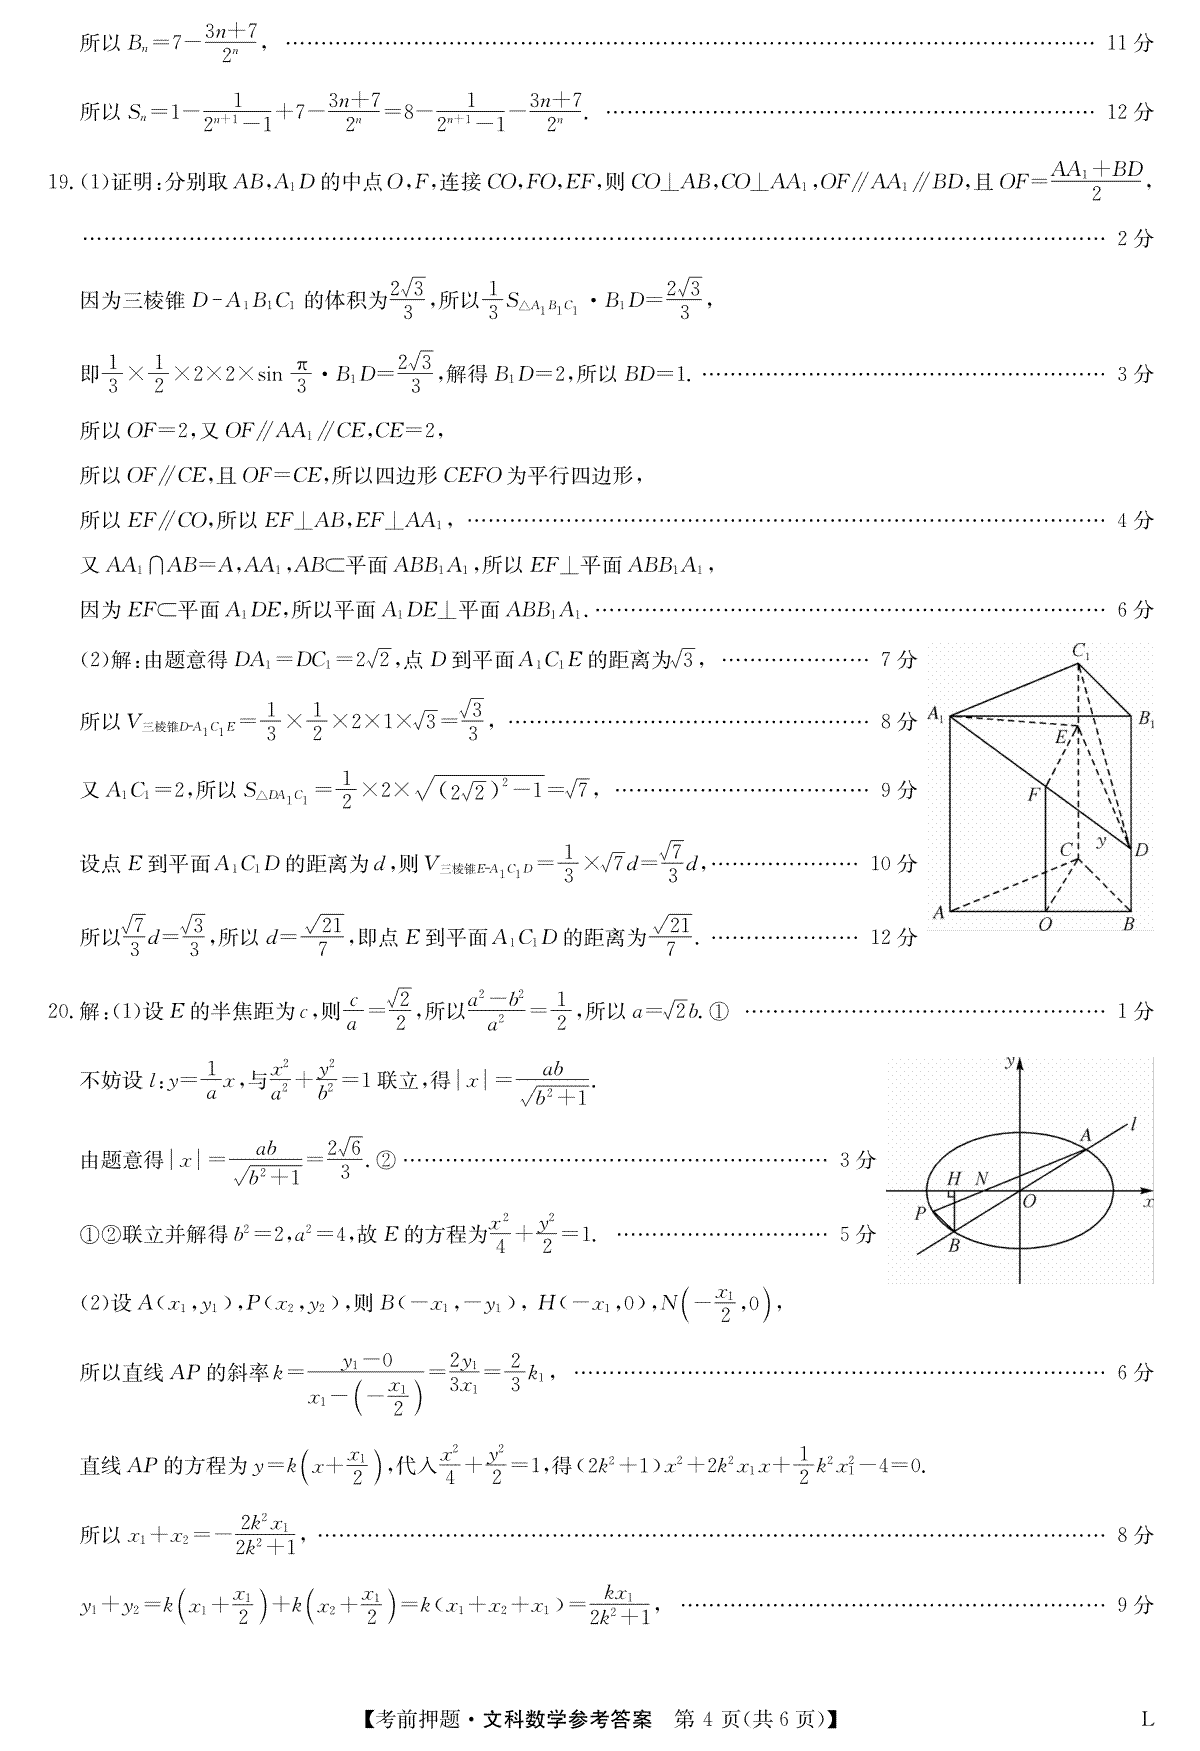 所以 Bₙ=7−(3n+7)/2ⁿ, …… 11 分
所以 Sₙ=1−1/(2ⁿ⁺¹−1)+7−(3n+7)/2ⁿ=8−1/(2ⁿ⁺¹−1)−(3n+7)/2ⁿ. …… 12 分
19. (1)证明:分别取 AB,A₁D 的中点 O,F,连接 CO,FO,EF,则 CO⊥AB,CO⊥AA₁,OF∥AA₁∥BD,且 OF=(AA₁+BD)/2,
…… 2 分
因为三棱锥 D-A₁B₁C₁ 的体积为 2√3/3,所以 1/3 S△A₁B₁C₁·B₁D=2√3/3,
即 1/3×1/2×2×2×sin π/3·B₁D=2√3/3,解得 B₁D=2,所以 BD=1. …… 3 分
所以 OF=2,又 OF∥AA₁∥CE,CE=2,
所以 OF∥CE,且 OF=CE,所以四边形 CEFO 为平行四边形,
所以 EF∥CO,所以 EF⊥AB,EF⊥AA₁, …… 4 分
又 AA₁∩AB=A,AA₁,AB⊂平面 ABB₁A₁,所以 EF⊥平面 ABB₁A₁,
因为 EF⊂平面 A₁DE,所以平面 A₁DE⊥平面 ABB₁A₁. …… 6 分
(2)解:由题意得 DA₁=DC₁=2√2,点 D 到平面 A₁C₁E 的距离为√3, …… 7 分
所以 V三棱锥D-A₁C₁E=1/3×1/2×2×1×√3=√3/3, …… 8 分
又 A₁C₁=2,所以 S△DA₁C₁=1/2×2×√((2√2)²−1)=√7, …… 9 分
设点 E 到平面 A₁C₁D 的距离为 d,则 V三棱锥E-A₁C₁D=1/3×√7d=√7/3 d, …… 10 分
所以 √7/3 d=√3/3,所以 d=√21/7,即点 E 到平面 A₁C₁D 的距离为 √21/7. …… 12 分
C₁
A₁
B₁
E
F
y
C
D
A
O
B
20. 解:(1)设 E 的半焦距为 c,则 c/a=√2/2,所以 (a²−b²)/a²=1/2,所以 a=√2b. ① …… 1 分
不妨设 l:y=1/a x,与 x²/a²+y²/b²=1 联立,得|x|=ab/√(b²+1).
由题意得|x|=ab/√(b²+1)=2√6/3. ② …… 3 分
①②联立并解得 b²=2,a²=4,故 E 的方程为 x²/4+y²/2=1. …… 5 分
y
l
A
H
N
O
x
P
B
(2)设 A(x₁,y₁),P(x₂,y₂),则 B(−x₁,−y₁), H(−x₁,0),N(−x₁/2,0),
所以直线 AP 的斜率 k=(y₁−0)/(x₁−(−x₁/2))=2y₁/3x₁=2/3 k₁, …… 6 分
直线 AP 的方程为 y=k(x+x₁/2),代入 x²/4+y²/2=1,得(2k²+1)x²+2k²x₁x+1/2 k²x₁²−4=0.
所以 x₁+x₂=−2k²x₁/(2k²+1), …… 8 分
y₁+y₂=k(x₁+x₁/2)+k(x₂+x₁/2)=k(x₁+x₂+x₁)=kx₁/(2k²+1), …… 9 分
【考前押题·文科数学参考答案 第 4 页(共 6 页)】 L